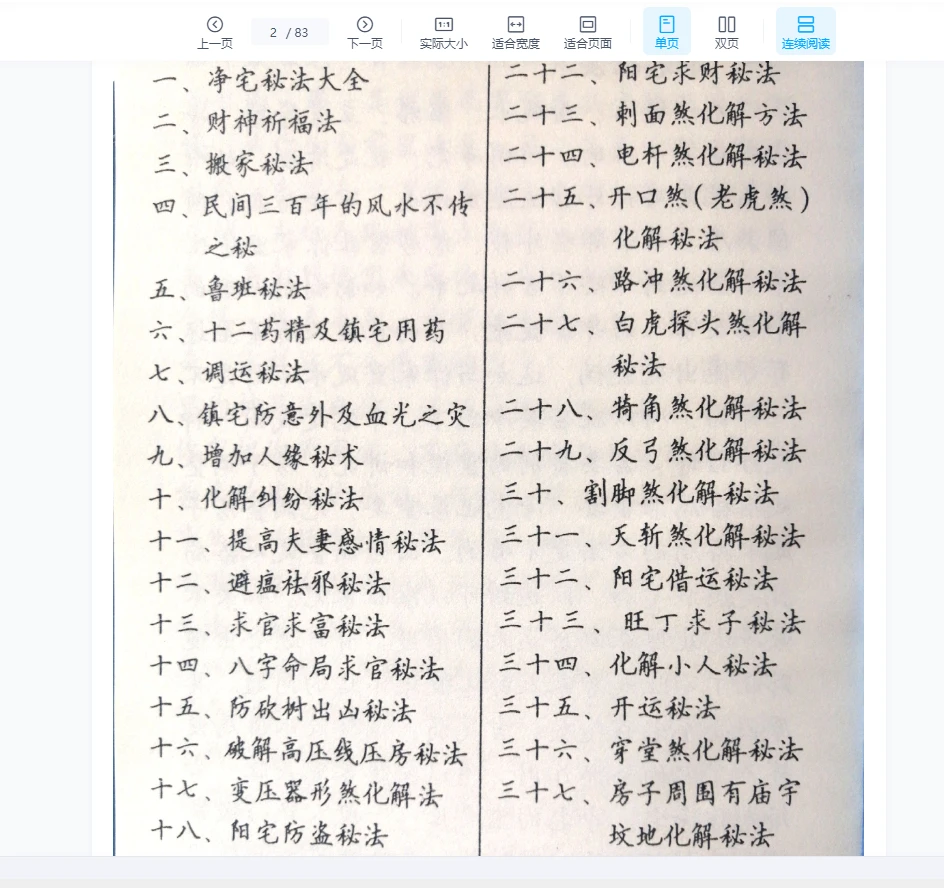 上一页
2 / 83
下一页
实际大小
适合宽度
适合页面
单页
双页
连续阅读
一、净宅秘法大全
二、财神祈福法
三、搬家秘法
四、民间三百年的风水不传
之秘
五、鲁班秘法
六、十二药精及镇宅用药
七、调运秘法
八、镇宅防意外及血光之灾
九、增加人缘秘术
十、化解纠纷秘法
十一、提高夫妻感情秘法
十二、避瘟祛邪秘法
十三、求官求富秘法
十四、八字命局求官秘法
十五、防砍树出凶秘法
十六、破解高压线压房秘法
十七、变压器形煞化解法
十八、阳宅防盗秘法
二十二、阳宅求财秘法
二十三、刺面煞化解方法
二十四、电杆煞化解秘法
二十五、开口煞(老虎煞)
化解秘法
二十六、路冲煞化解秘法
二十七、白虎探头煞化解
秘法
二十八、犄角煞化解秘法
二十九、反弓煞化解秘法
三十、割脚煞化解秘法
三十一、天斩煞化解秘法
三十二、阳宅借运秘法
三十三、旺丁求子秘法
三十四、化解小人秘法
三十五、开运秘法
三十六、穿堂煞化解秘法
三十七、房子周围有庙宇
坟地化解秘法